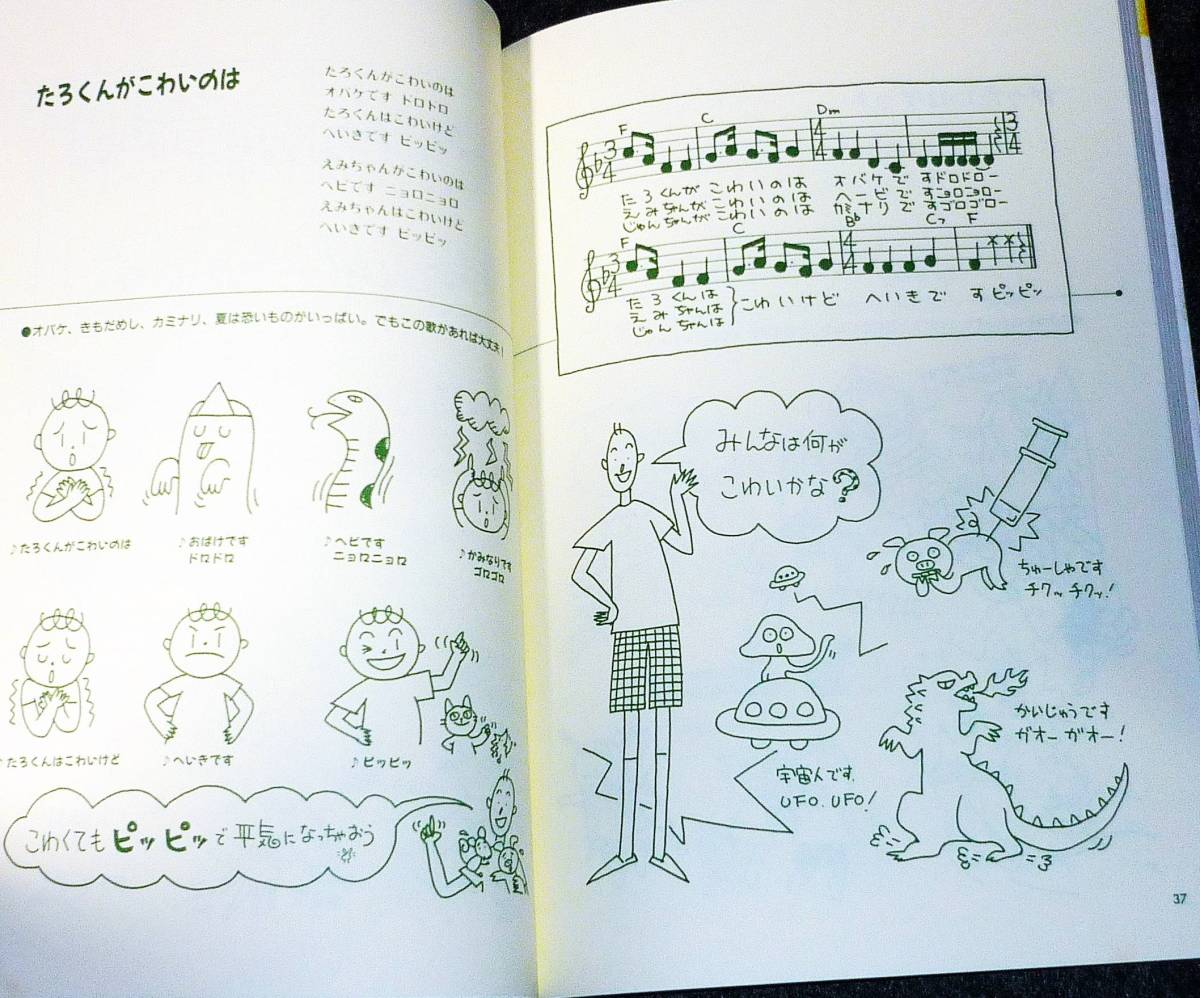 たろくんがこわいのは
たろくんがこわいのは
オバケです ドロトロ
たろくんはこわいけど
へいきです ピッピッ
えみちゃんがこわいのは
ヘビです ニョロニョロ
えみちゃんはこわいけど
へいきです ピッピッ
●オバケ、きもだめし、カミナリ、夏は恐いものがいっぱい。でもこの歌があれば大丈夫!
♪たろくんがこわいのは
♪おばけです
ドロドロ
♪ヘビです
ニョロニョロ
♪かみなりです
ゴロゴロ
♪たろくんはこわいけど
♪へいきです
♪ピッピッ
こわくてもピッピッで平気になっちゃおう
F C Dm
3/4 4/4 3/4
たろくんが こわいのは オバケで すドロドロー
えみちゃんが こわいのは ヘービで すニョロニョロー
じゅんちゃんが こわいのは カミナリで すゴロゴロー
F C B♭ C7 F
3/4 4/4
たろくんは
えみちゃんは こわいけど へいきで すピッピッ
じゅんちゃんは
みんなは何が
こわいかな?
ちゅーしゃです
チクッ チクッ!
宇宙人です
UFO、UFO!
かいじゅうです
ガオー ガオー!
37